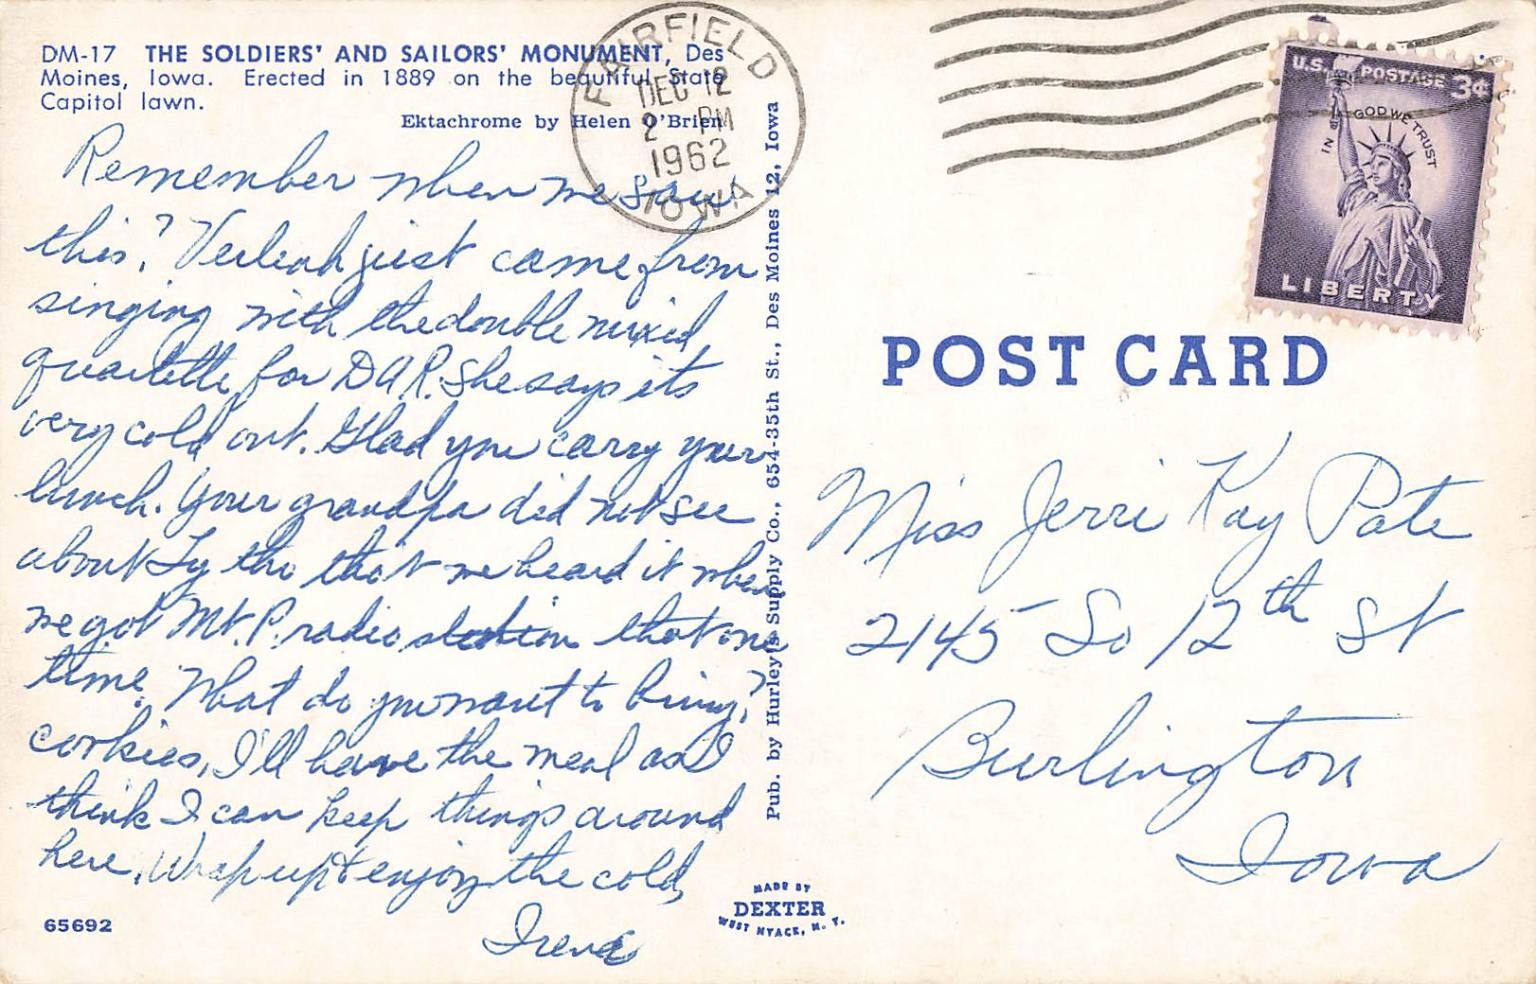 DM-17 THE SOLDIERS' AND SAILORS' MONUMENT, Des
Moines, Iowa. Erected in 1889 on the beautiful State
Capitol lawn.
Ektachrome by Helen O'Brien
Remember when we saw
this? Verleah just came from
singing with the double mixed
quartette for DAR. She says its
very cold out. Glad you carry your
lunch. Your grandpa did not see
about Ty tho that we heard it when
we got Mt. P. radio station that one
time. What do you want to bring?
cookies, I'll have the meal as I
think I can keep things around
here. Wrap up & enjoy the cold,
Irene
65692
Pub. by Hurley's Supply Co., 654-35th St., Des Moines 12, Iowa
MADE BY
DEXTER
WEST NYACK, N. Y.
FAIRFIELD
DEC 12
2 PM
1962
IOWA
U.S. POSTAGE 3¢
IN GOD WE TRUST
LIBERTY
POST CARD
Miss Jerri Kay Pate
2145 So 12th St
Burlington
Iowa